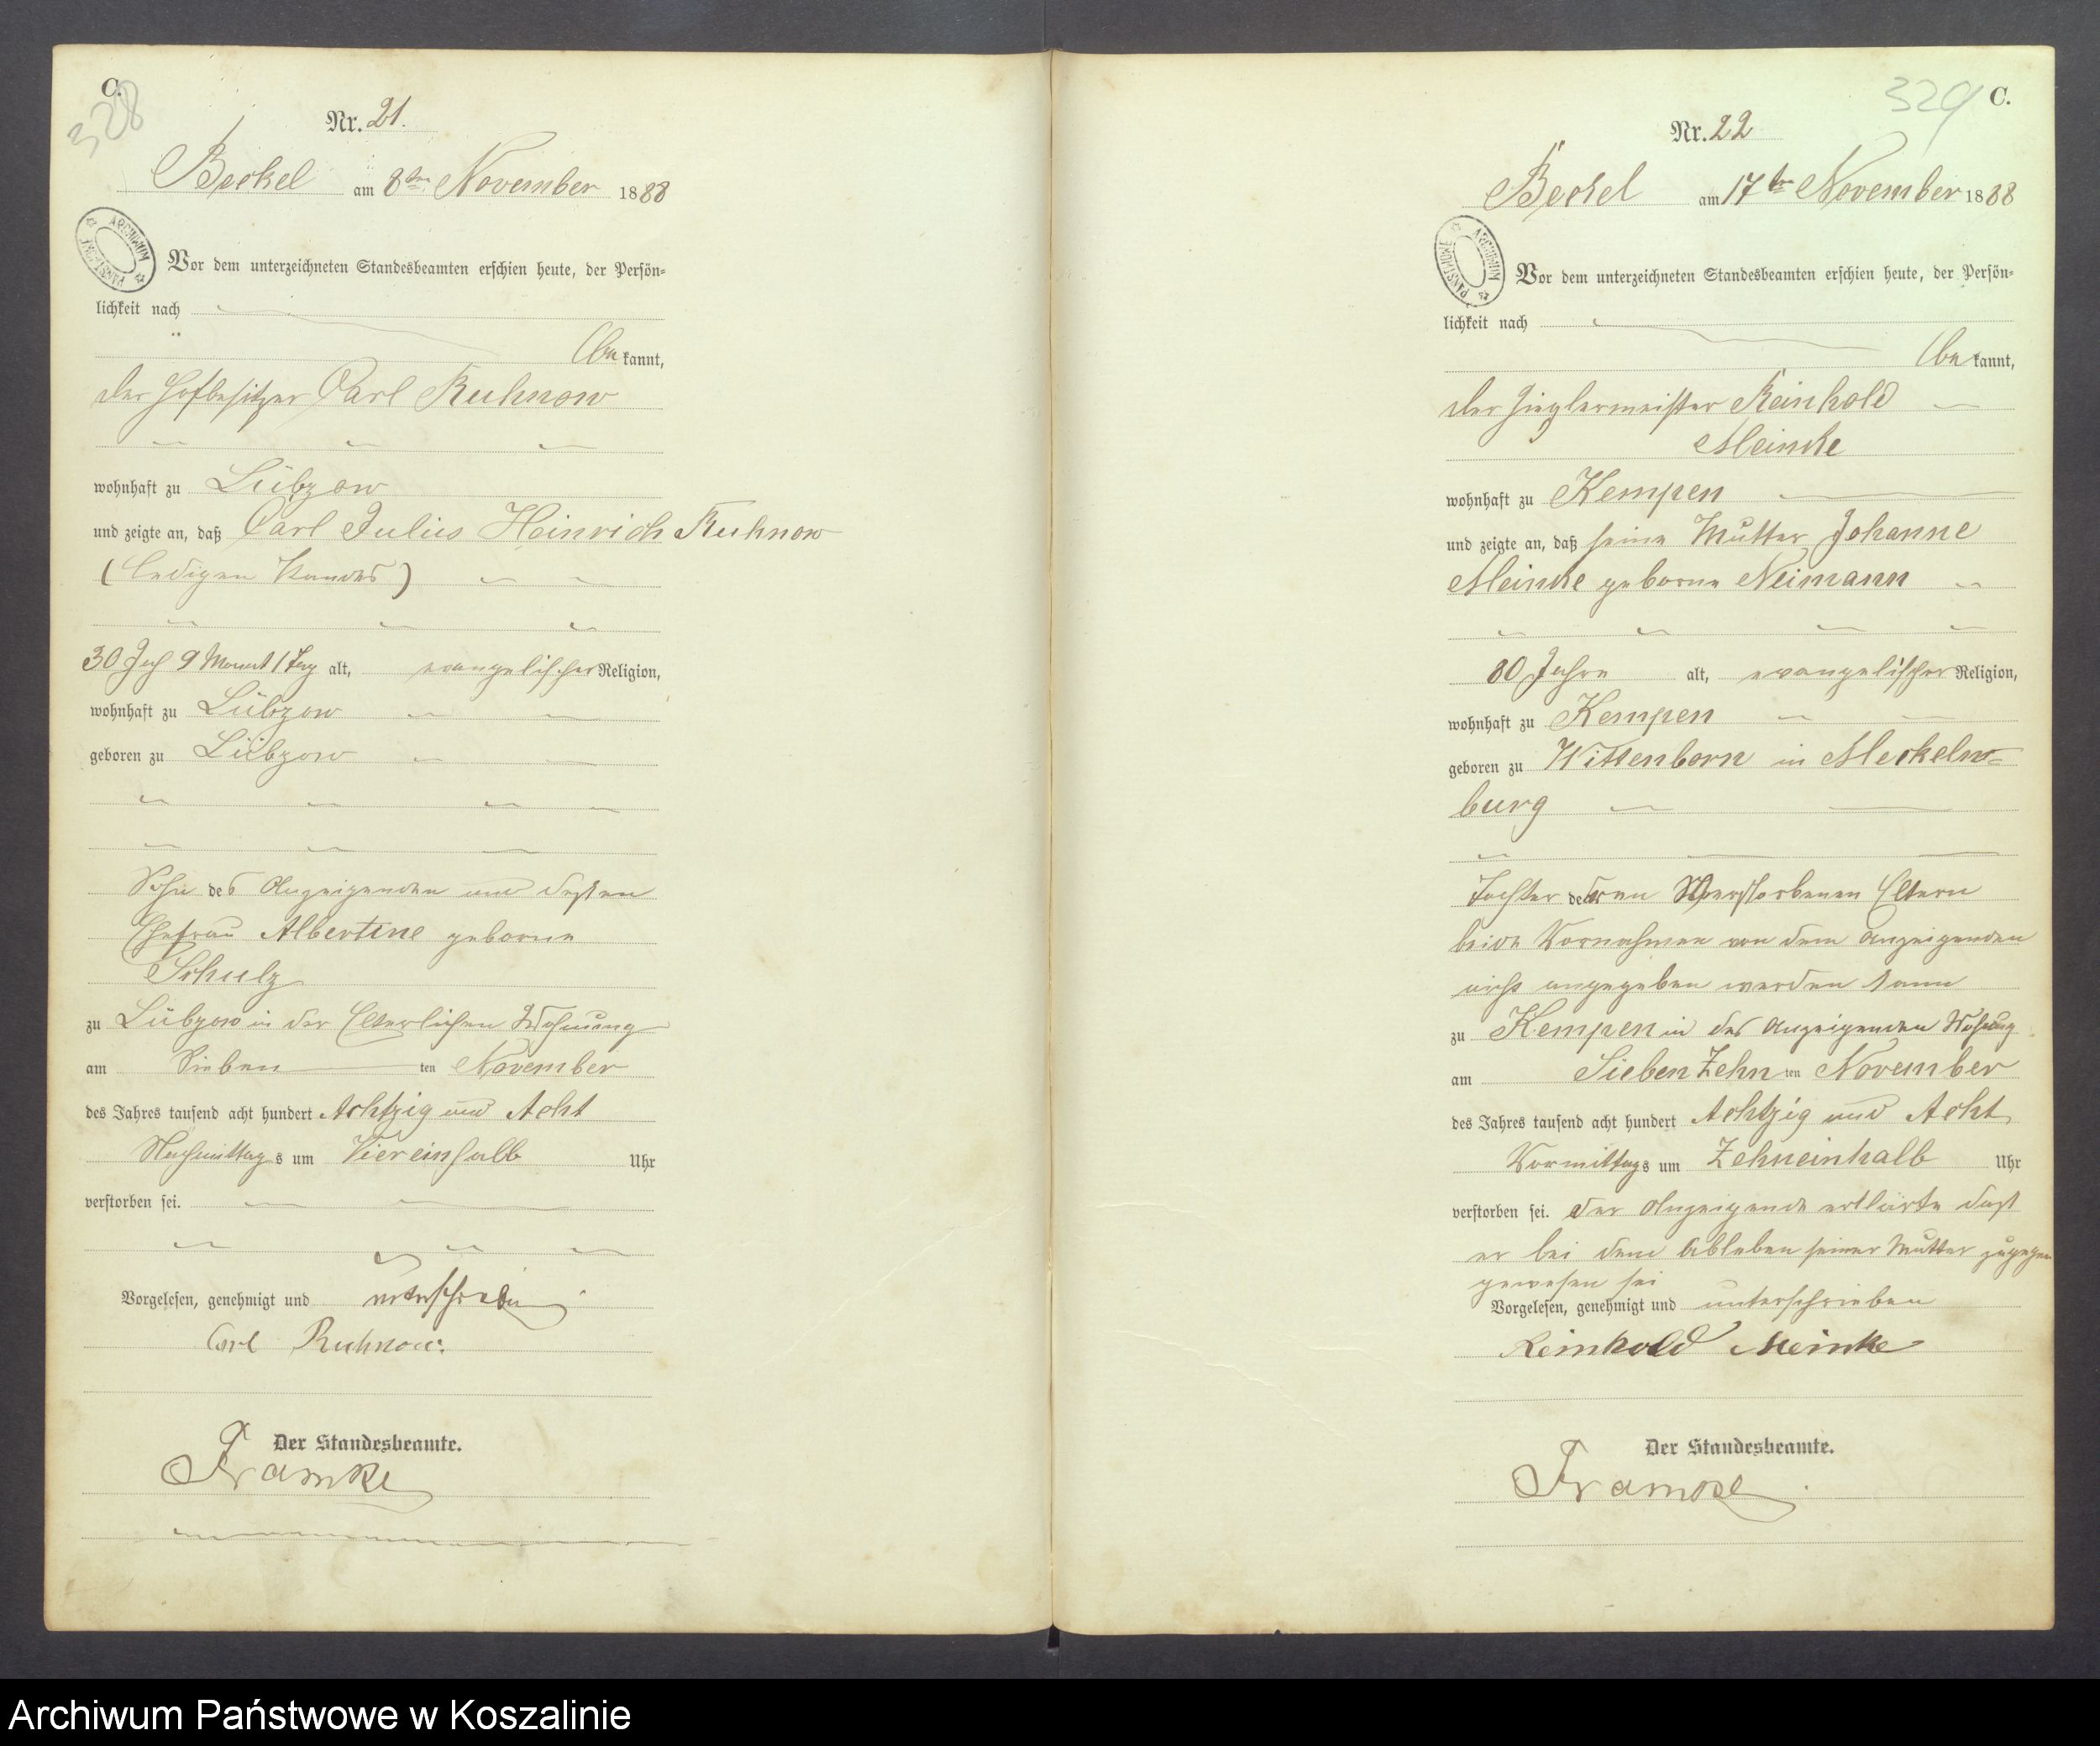 C.
328
Nr. 21.
Beckel am 8ten November 1888
ARCHIWUM PAŃSTWOWE
Vor dem unterzeichneten Standesbeamten erschien heute, der Persön=
lichkeit nach
bekannt,
der Hofbesitzer Carl Ruhnow
wohnhaft zu Lübzow
und zeigte an, daß Carl Julius Heinrich Ruhnow
(ledigen Standes)
30 Jah 9 Monat 1 Tag alt, evangelischer Religion,
wohnhaft zu Lübzow
geboren zu Lübzow
Sohn des Anzeigenden und dessen
Ehefrau Albertine geborne
Schulz
zu Lübzow in der Elterlichen Wohnung
am Sieben ten November
des Jahres tausend acht hundert Achtzig und Acht
Nachmittags um Viereinhalb Uhr
verstorben sei.
Vorgelesen, genehmigt und unterschrieben
Carl Ruhnow.
Der Standesbeamte.
Framke
329
C.
Nr. 22
Beckel am 17ten November 1888
ARCHIWUM PAŃSTWOWE
Vor dem unterzeichneten Standesbeamten erschien heute, der Persön=
lichkeit nach
bekannt,
der Zieglermeister Reinhold
Meinke
wohnhaft zu Kempen
und zeigte an, daß seine Mutter Johanne
Meinke geborne Neimann
80 Jahre alt, evangelischer Religion,
wohnhaft zu Kempen
geboren zu Wittenborn in Meckeln=
burg
Tochter deren Verstorbenen Eltern
beide Vornahmen von dem Anzeigenden
nicht angegeben werden kann
zu Kempen in des Anzeigenden Wohnung
am Sieben Zehn ten November
des Jahres tausend acht hundert Achtzig und Acht
Vormittags um Zehneinhalb Uhr
verstorben sei. Der Anzeigende erklärte dass
er bei dem Ableben seiner Mutter zugegen
gewesen sei
Vorgelesen, genehmigt und unterschrieben
Reinhold Meinke
Der Standesbeamte.
Framke
Archiwum Państwowe w Koszalinie